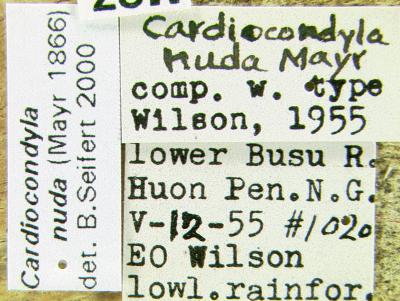 Cardiocondyla
nuda (Mayr 1866)
det. B.Seifert 2000
Cardiocondyla
nuda Mayr
comp. w. type
Wilson, 1955
lower Busu R.
Huon Pen.N.G.
V-12-55 #1020
EO Wilson
lowl.rainfor.